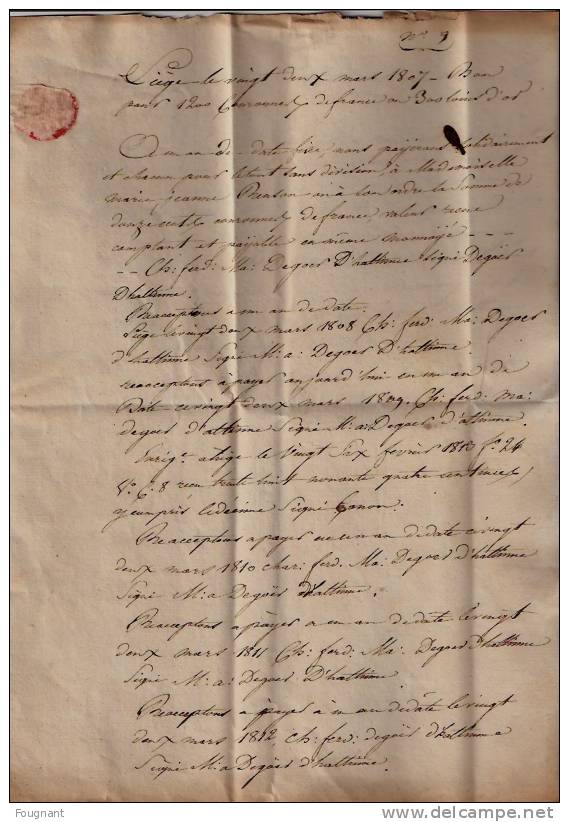 n° 9
Liège le vingt deux mars 1807 - Bon
pour 1200 Couronnes de france ou 300 louis d'or
A un an de date fixe, nous payerons solidairement
et chacun pour le tout sans division, à Mademoiselle
marie jeanne Renson ou à son ordre la Somme de
douze cents couronnes de france, valeur recue
comptant et payable en même monnoÿe - - -
- - Ch: ferd: Ma: Degoer D'haltinne Signé Degöer
D'haltinne.
Reacceptons a un an de date
Liege le vingt deux mars 1808 Ch: ferd: Ma: Degoer
d'haltinne Signé M: a: Degoer D'haltinne
reacceptons à payer aujourd'hui en un an de
Date ce vingt deux mars 1809. Ch: ferd: ma:
degoer d'altinne Signé M: a: Degoer d'altinne.
Enrigt. a liege le Vingt Six fevrier 1813 f°. 24
V°. C. 8 recu trente huit nonante quatre centimes,
y compris le decime Signé
Reacceptons a payer en un an de date ce vingt
deux mars 1810 char: ferd: Ma: Degoer d'haltinne
Signé M: a Degoër d'haltinne.
Reacceptons a pàyer a un an de date le vingt
deux mars 1811 Ch: ferd: Ma: Degoer d'haltinne
Signé M: a: Degoer D'haltinne
Reacceptons à payer à un an de date le vingt
deux mars 1812, Ch: ferd: degoër d'haltinne
Signé M: a Degoër d'haltinne.
Fougnant
delcampe.net